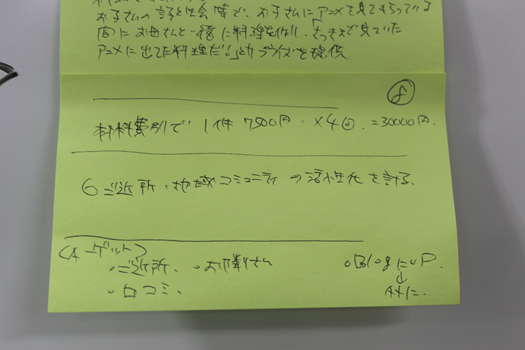 お子さんの
お子さんにアニメを見てもらっている
間にお母さんと一緒に料理を作り、「さっきまで見ていた
アニメに出てた料理だ!」とサプライズを提供
⑧
材料費別で 1件 7500円 ×4回 =30000円.
⑥ ご近所・地域コミュニティの活性化を計る.
(ターゲット)
・ご近所. ・お隣さん
・口コミ.
・BlogにUP
↓